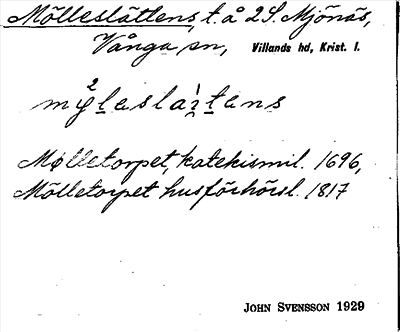 Mölleslättens, t. å 2 S. Mjönäs,
Vånga sn, Villands hd, Krist. l.
Mølletorpet, katekismil. 1696,
Mölletorpet husförhörsl. 1817
JOHN SVENSSON 1929